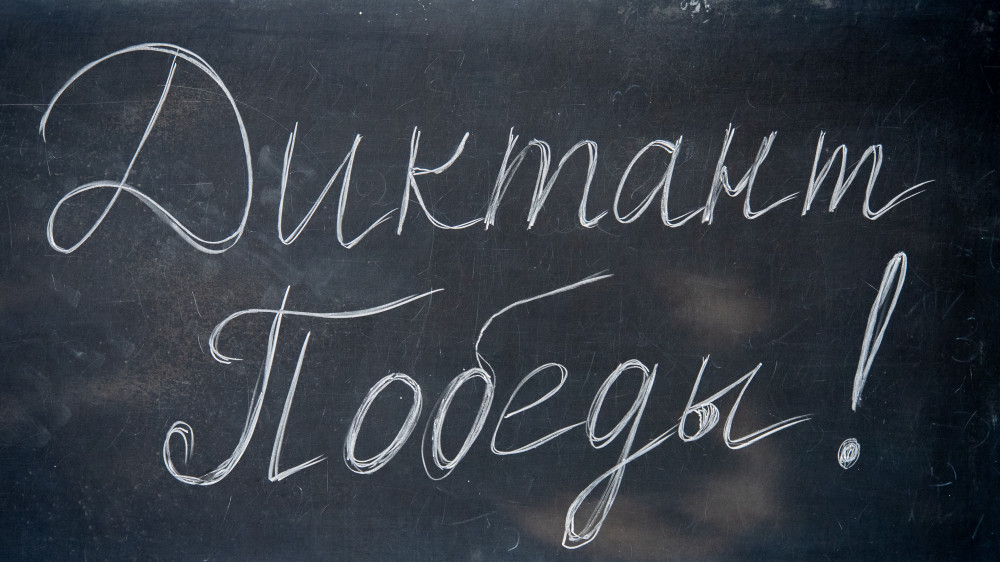 Диктант
Победы!